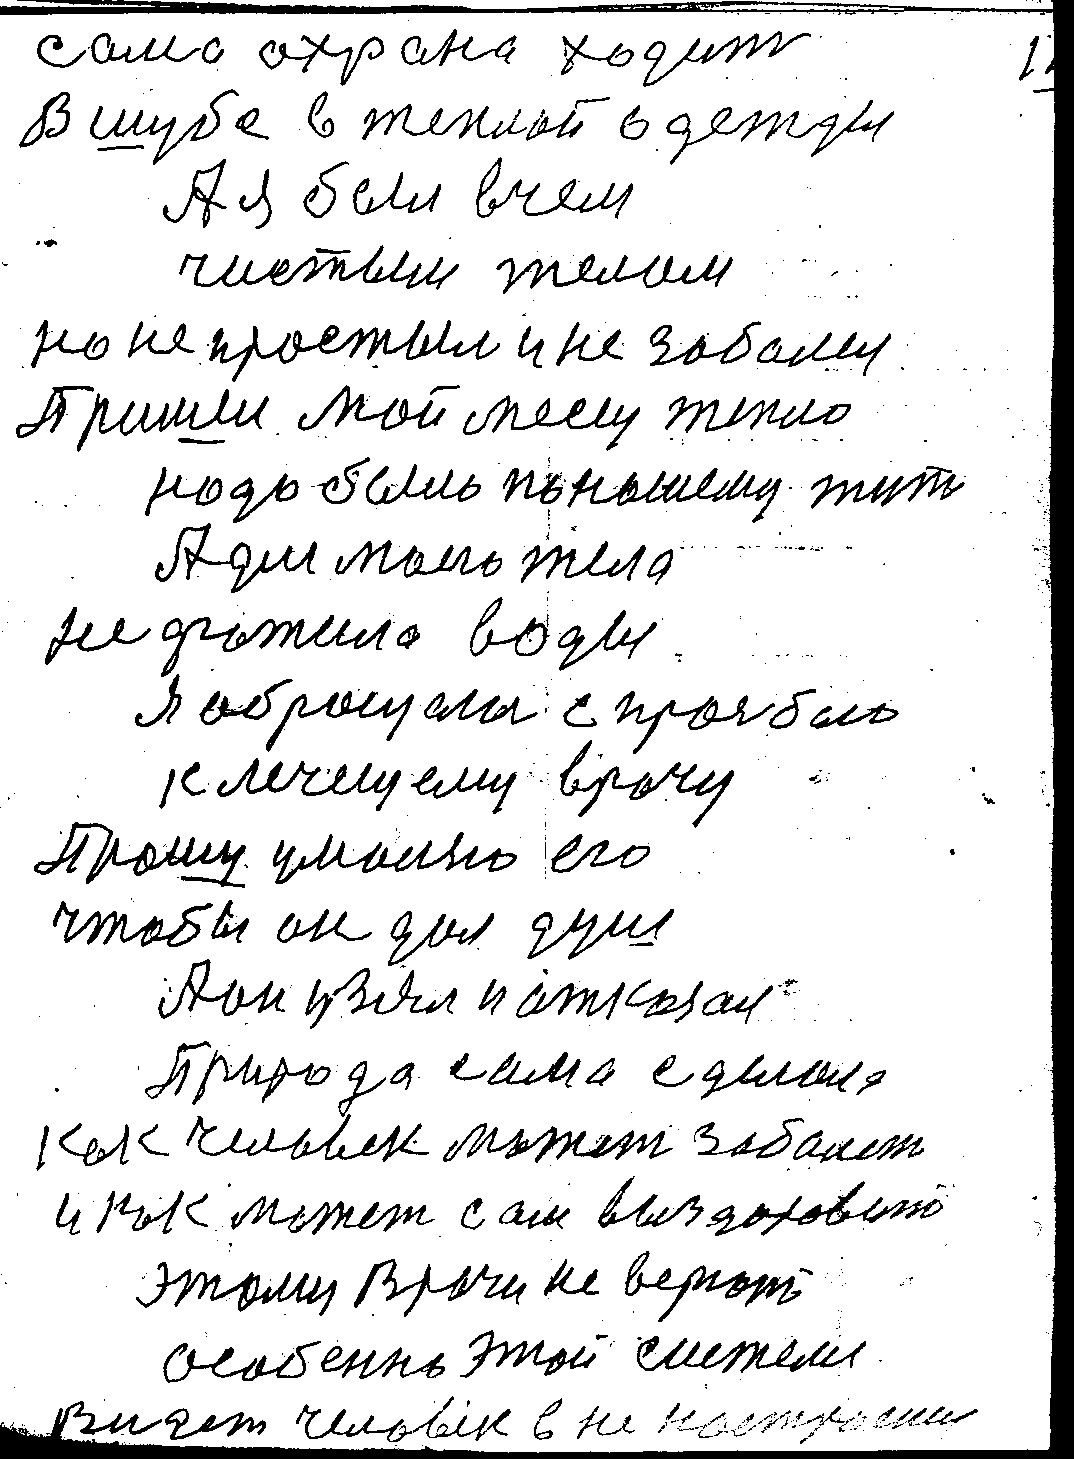 сама охрана ходит
В шубе в теплой одежды
А я был вчем
чистым телом
но не простыл и не заболел
Пришли мой месец тепло
надо было по нашему жить
А для моего тела
не хватило воды
Я обращался с прозбою
к лечещему врачу
Прошу умоляю его
чтобы он дал душ
А он взял и отказал
Природа сама сделала
как человек может заболеть
и как может сам выздоровить
этому врачи не верють
особенно этой системы
Видет человек в не настроении